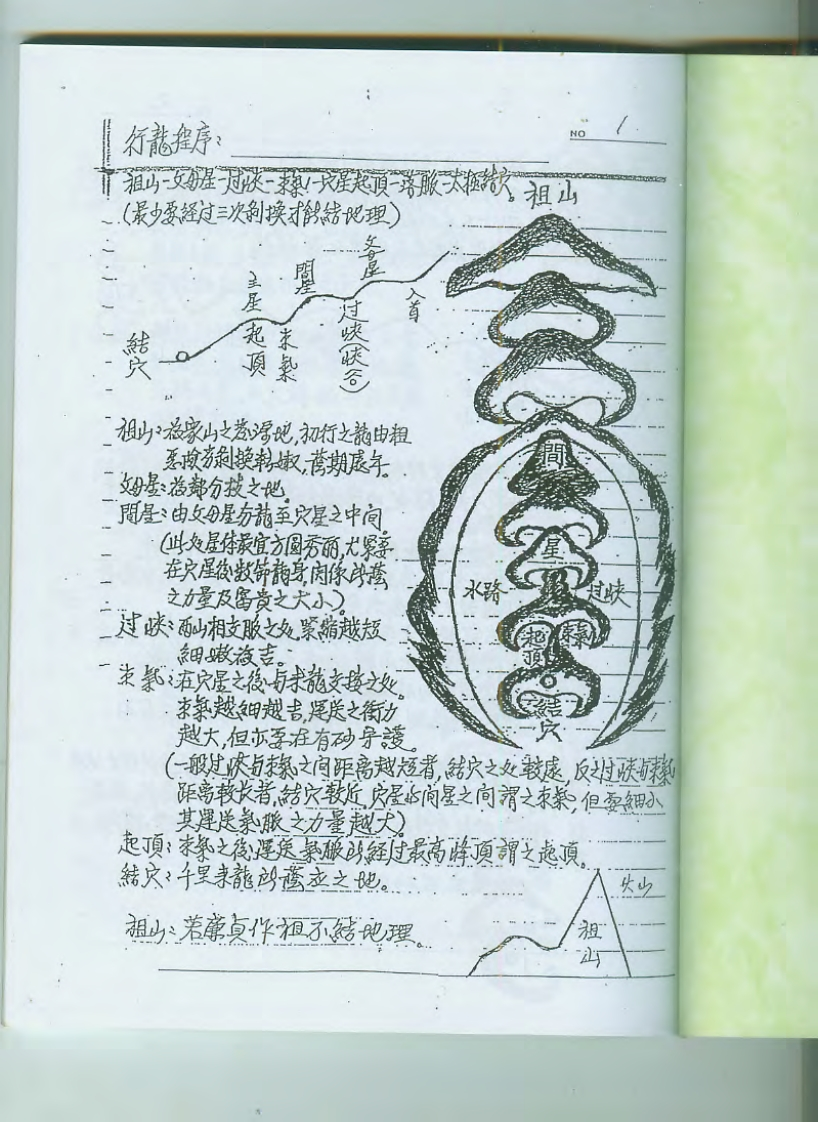 NO 1
行龍程序：
祖山－父母星－过峡－束氣－穴星起頂－落脈－太極結穴。
(最少要經过三次剥換才能結地理)
祖山
父母星
間星
主星起頂
束氣
过峡(峡谷)
入首
結穴
間
星
水路
过峡
起頂
束氣
結穴
祖山：為家山之發源地，初行之龍由粗
父母星：為龍分枝之地。
間星：由父母星分龍至穴星之中間。
(此处星体最宜方圓秀丽，尤緊要
在穴星後数節龍身，関係所蔭
之力量及富貴之大小)。
过峡：两山相交脈之处，緊縮越短
細嫩為吉。
束氣：在穴星之後与來龍交接之处。
束氣越細越吉，運送之衝力
越大，但亦要在有砂守護。
(一般过峡与束氣之间距离越短者，結穴之处較遠，反之过峡与束氣
距离較长者，結穴較近，穴星与间星之间謂之束氣，但要細小
其運送氣脈之力量越大)
起頂：束氣之後，運送氣脈所經过最高峰頂謂之起頂。
結穴：千里來龍所蔭立之地。
祖山：若廉貞作祖不結地理。
火山
祖山